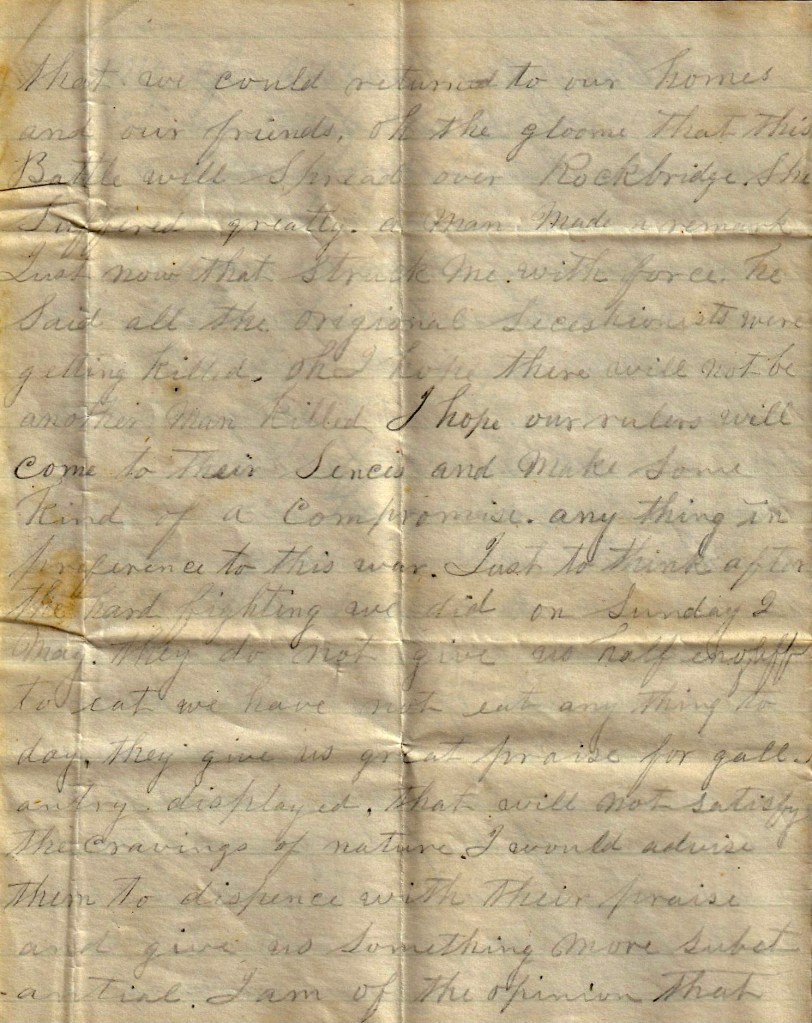 that we could returned to our homes
and our friends, oh the gloome that this
Battle will Spread over Rockbridge. She
Suffired greatly. a Man Made a remark
Just now that Struck Me with force. he
Said all the origional Secestionists were
getting killed. oh I hope there will not be
another Man Killed I hope our rulers will
come to their Sences and Make Some
Kind of a Compromise. any thing in
preference to this war. Just to think after
the hard fighting we did on Sunday 2
May. they do not give us half enough
to eat we have not eat any thing to
day, they give us great praise for gall-
antry displayed. that will not satisfy
the cravings of nature I would advise
them to dispence with their praise
and give us something More subst
-antial. I am of the opinion that